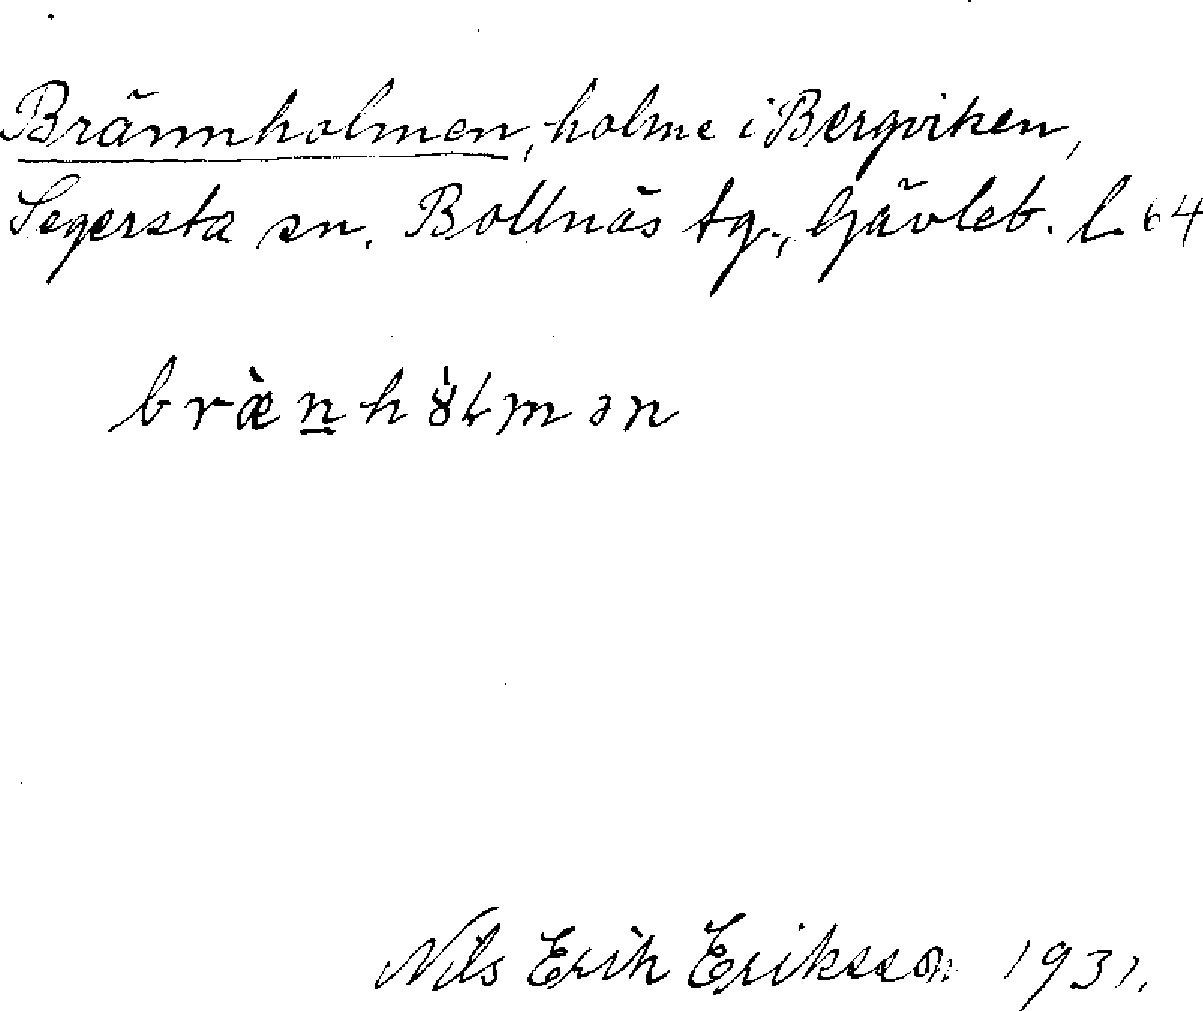 Brännholmen, holme i Bergviken,
Segersta sn. Bollnäs tg., Gävleb. L. 64
bræ̀n̲hȣ̀lmən
Nils Erik Eriksson 1931.